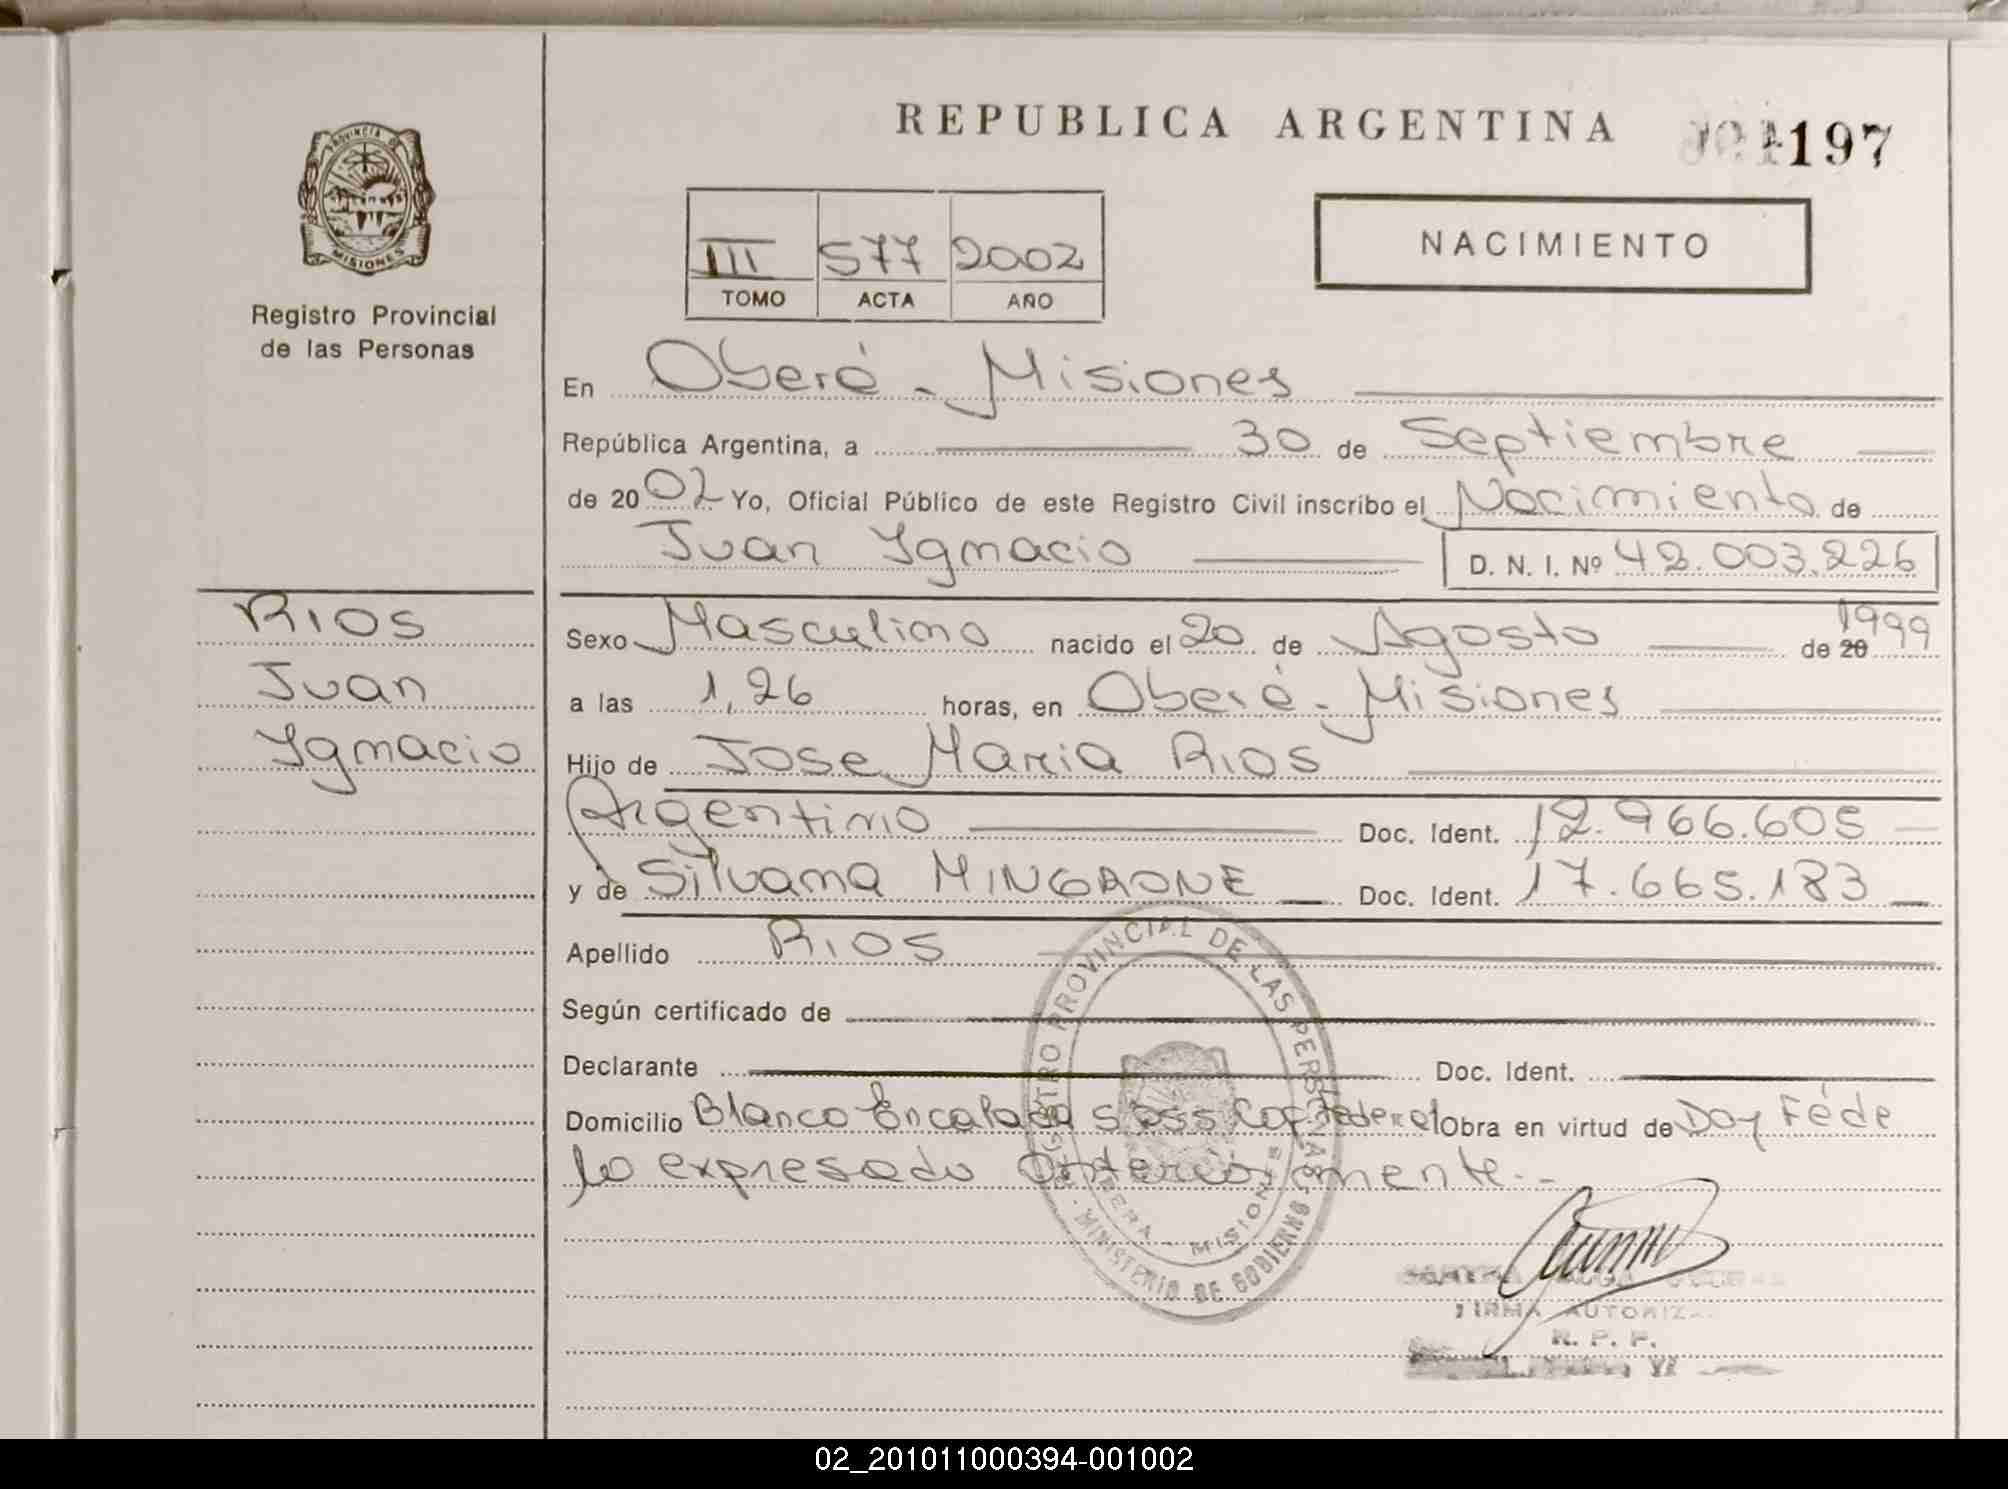 REPUBLICA ARGENTINA
197
PROVINCIA DE
MISIONES
Registro Provincial
de las Personas
III 577 2002
TOMO ACTA AÑO
NACIMIENTO
En Oberá - Misiones
República Argentina, a 30 de Septiembre
de 2002 Yo, Oficial Público de este Registro Civil inscribo el Nacimiento de
Juan Ygnacio D. N. I. Nº 42.003.226
RIOS
Juan
Ygnacio
Sexo Masculino nacido el 20 de Agosto de 20 1999
a las 1,26 horas, en Oberá - Misiones
Hijo de Jose Maria Rios
Argentino Doc. Ident. 12.966.605
y de Silvana MINGAONE Doc. Ident. 17.665.183
Apellido RIOS
Según certificado de
Declarante Doc. Ident.
Domicilio Blanco Encalada Cap. Federal obra en virtud de Doy Fé de
lo expresado anteriormente.-
REGISTRO PROVINCIAL DE LAS PERSONAS
MINISTERIO DE GOBIERNO
OBERA - MISIONES
FIRMA AUTORIZ
R. P. P.
02_201011000394-001002